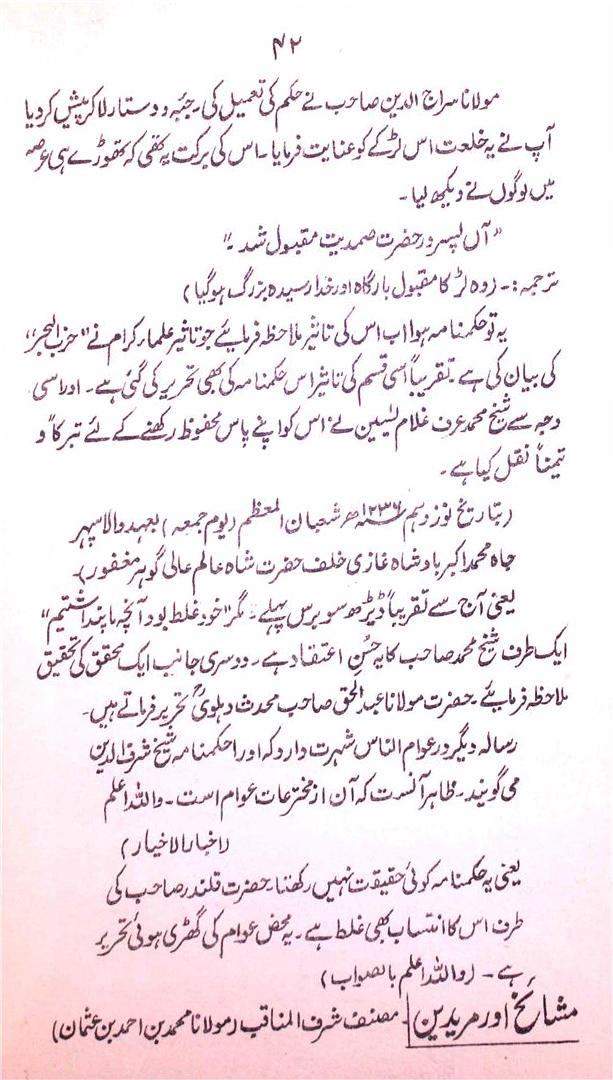 ۴۲
مولانا سراج الدین صاحب نے حکم کی تعمیل کی۔ جبّہ و دستار لا کر پیش کر دیا
آپ نے یہ خلعت اس لڑکے کو عنایت فرمایا۔ اس کی برکت یہ تھی کہ تھوڑے ہی عرصہ
میں لوگوں نے دیکھ لیا۔
"آں پسر در حضرت صمدیت مقبول شد۔"
ترجمہ:۔ (وہ لڑکا مقبول بارگاہ اور خدا رسیدہ بزرگ ہو گیا)
یہ تو حکمنامہ ہوا اب اس کی تاثیر ملاحظہ فرمایئے جو تاثیر علماء کرام نے "حزب البحر"
کی بیان کی ہے۔ تقریباً اسی قسم کی تاثیر اس حکمنامہ کی بھی تحریر کی گئی ہے۔ اور اسی
وجہ سے شیخ محمد عرف غلام یٰسین نے اس کو اپنے پاس محفوظ رکھنے کے لئے تبرکاً و
تیمناً نقل کیا ہے۔
(بتاریخ نوزدہم ۱۲۳۶ھ شعبان المعظم (یوم جمعہ) بعہد والا سپہر
جاہ محمد اکبر بادشاہ غازی خلف حضرت شاہ عالم عالی گوہر مغفور)۔
یعنی آج سے تقریباً ڈیڑھ سو برس پہلے۔ مگر "خود غلط بود آنچہ ما پنداشتیم"
ایک طرف شیخ محمد صاحب کا یہ حُسنِ اعتقاد ہے۔ دوسری جانب ایک محقق کی تحقیق
ملاحظہ فرمایئے۔ حضرت مولانا عبد الحق صاحب محدث دہلویؒ تحریر فرماتے ہیں۔
رسالہ دیگر در عوام الناس شہرت دارد کہ او را حکمنامہ شیخ شرف الدین
می گویند۔ ظاہر آنست کہ آن از مخترعات عوام است۔ واللہ اعلم
(اخبار الاخیار)
یعنی یہ حکمنامہ کوئی حقیقت نہیں رکھتا۔ حضرت قلندر صاحب کی
طرف اس کا انتساب بھی غلط ہے۔ یہ محض عوام کی گھڑی ہوئی تحریر
ہے۔ (واللہ اعلم بالصواب)
مشائخ اور مریدین۔ مصنف شرف المناقب (مولانا محمد بن احمد بن عثمان)